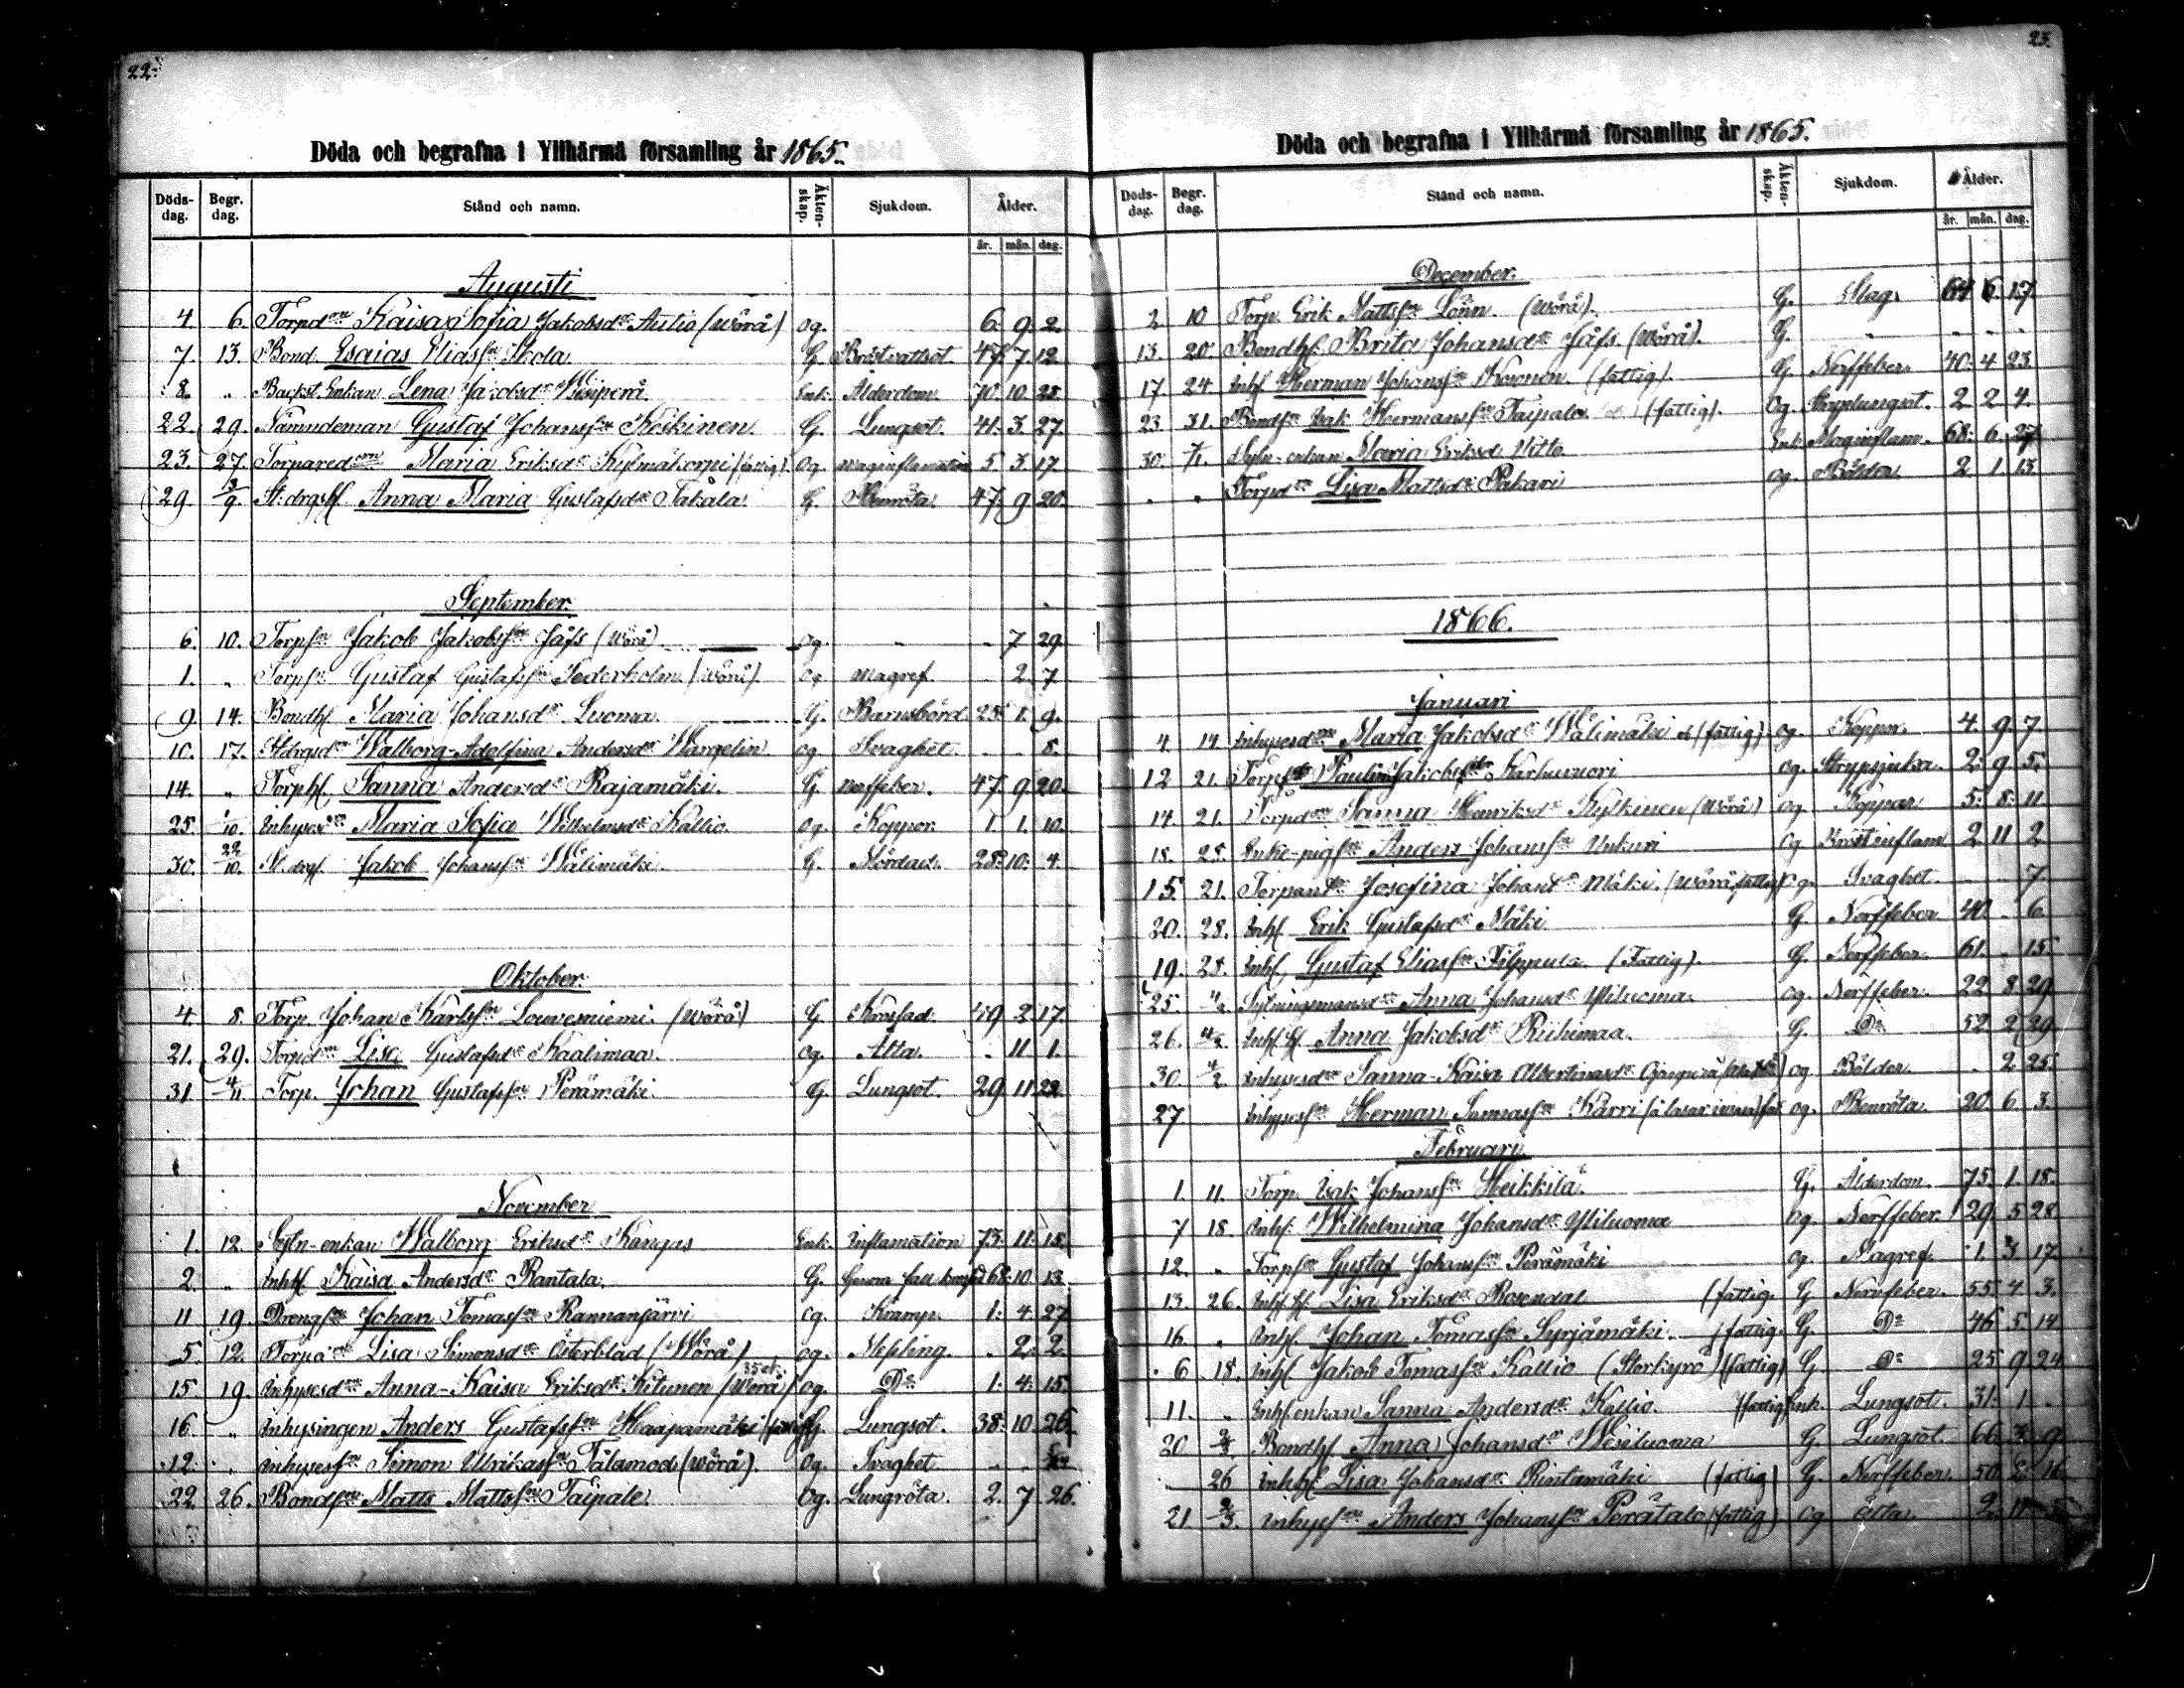 22.
Döda och begrafna i Ylihärmä församling år 1865.
Döds-dag. Begr. dag. Stånd och namn. Äkten-skap. Sjukdom. Ålder.
år. mån. dag.
Augusti
4. 6. Torpd:rn Kaisa Sofia Jakobsd:r Autio (Wörå) og. 6. 9. 2.
7. 13. Bond. Esaias Eliass:n Skola G. Bröstvattsot 47. 7. 12.
8. " Backst. Enkan Lena Jakobsd:r Enk. Ålderdom. 70. 10. 28.
22. 29. Nämndeman Gustaf Johanss:n Keskinen. G. Lungsot. 41. 3. 27.
23. 27. Maria Eriksd:r Kylmäkorpi (fattig) og maginflamation 5. 3. 17.
29. 3/9. St. drgshf. Anna Maria Gustafsd:r Takala. G. Benröta. 47. 9. 20.
September.
6. 10. Torps:n Jakob Jakobss:n Jåfs (Wörå) og. - . 7 29.
1. " Torps:n Gustaf Gustafss:n Sederholm (Wörå). og magref . 2. 7
9 14. Bondhf. Maria Johansd:r Luoma. G. Barnsbörd 25. 1. 9.
10. 17. Walborg-Adolfina Andersd:r Wargelin og Svaghet. . . 8.
14. " Torphf. Sanna Andersd:r Rajamäki. G. nerffeber. 47. 9. 20.
25 1/10. Maria Sofia Wilhelmsd:r Kallio. og. Koppor. 1. 1. 10.
30. 22/10. Jakob Johanss:n Wälimäki. G. Mördad. 28. 10. 4.
Oktober.
4. 8. Torp. Johan Karlss:n Louvesniemi. (Wörå) G. 49 2 17.
21. 29. Torpd:rn Lisa Gustafsd:r Kaalimaa. og. Ätta. . 11 1.
31 4/11 Torp. Johan Gustafss:n Perämäki. G. Lungsot. 29. 11. 22
November
1. 12. Sytn-enkan Walborg Eriksd:r Kangas Enk. Inflamation 73. 11. 18.
2. " Inhhf. Kaisa Andersd:r Rantala. G. Genom fall 68. 10 13.
11 19. Drengs:n Johan Tomass:n Rannanjärvi og. Kramp. 1. 4. 27
5. 12. Lisa Simonsd:r Österblad (Wörå) og. Messling. . 2. 2.
15. 19. Inhysesd:rn Anna-Kaisa Eriksd:r Kitunen (Wörå) og. D:o 1. 4. 15.
16. " Inhysingen Anders Gustafss:n Haapamäki (fattig) G. Lungsot. 38. 10. 26
12. " Inhysess:n Simon Ulrikass:n Tålamod (Wörå). og. Svaghet. . .
22. 26. Bonds:n Matts Mattss:n Taipale. og. Lungröta. 2. 7 26.
23.
Döda och begrafna i Ylihärmä församling år 1865.
Döds-dag. Begr. dag. Stånd och namn. Äkten-skap. Sjukdom. Ålder.
år. mån. dag.
December.
2. 10 Torp. Erik Mattss:n Lönn. (Wörå). G. Slag. 64 6 17.
13. 20. Bondhf. Brita Johansd:r Jåfs. (Wörå). G. - - - -
17. 24. Inh. Herman Johanss:n (fattig). G. Nerffeber. 40. 4 23.
23. 31. Bonds:n Isak Hermanss:n Taipale (fattig). og. Stryplungsot. 2 2 4.
30. Sytn-enkan Maria Eriksd Witto Enk. Maginflam. 68. 6. 27
" " Torpd:rn Lisa Mattsd:r Pakari og. Bölder. 2 1. 13.
1866.
Januari
4. 14. Inhysesd:rn Maria Jakobsd:r Wälimäki (fattig) og. Koppor. 4. 9. 7.
12 21. Paulina Karhuvuori og. Strypsjuka. 2. 9 5.
14. 21. Torpd:rn Sanna Henriksd:r Kylkinen (Wörå) og Koppor 5. 8. 11
18. 28. Anders Johanss:n Unkuri og Bröstinflam 2 11 2
15. 21. Josefina Johansd:r Mäki. (Wörå fattig) og. Svaghet. . . 7
20. 28. Inh. Erik Gustafsd:r Mäki. G. Nerffeber 40 . 6.
19. 28. Inh. Gustaf Eliass:n Filppula. (Fattig). G. Nerffeber. 61. . 15.
25. 4/2 Sytningsmansd:rn Anna Johansd:r Yliluoma. og. Nerffeber. 22 8 29.
26. 4/2. Inhhf. Anna Jakobsd:r Riihimaa. G. D:o 52 2 29.
30. 4/2 Inhysesd:rn Sanna-Kaisa Albertinasd:r og Bölder. . 2 25.
27. Inhysess:n Herman Sannass:n Karri og. Benröta. 20 6. 3.
Februari
1. 11. Torp. Isak Johanss:n Heikkilä. G. Ålderdom. 75. 1. 18.
7 18. Inh. Wilhelmina Johansd:r Yliluoma og. Nerffeber. 29. 5 28
12. " Torps:n Gustaf Johanss:n Perämäki og. Magref. 1. 3 17
13. 26. Inhhf. Lisa Eriksd:r Rosendal (fattig. G. Nerffeber. 55. 4 3.
16. " Inh. Johan Tomass:n Syrjämäki. (fattig. G. D:o 46 5 14
6 18. Inh. Jakob Tomass:n Kallio (Storkyro) (fattig) G. D:o 25 9 24
11. " Inh. enkan Sanna Andersd:r Kallio. (fattig) Enk. Lungsot. 31. 1 .
20 Bondhf. Anna Johansd:r Wesiluoma G. Lungsot. 66. 3. 9.
. 26 Inhhf. Lisa Johansd:r Rintamäki (fattig) G. Nerffeber. 50
21 2/3. Inhyss:n Anders Johanss:n Perätalo (fattig) og ätta. 2. 11